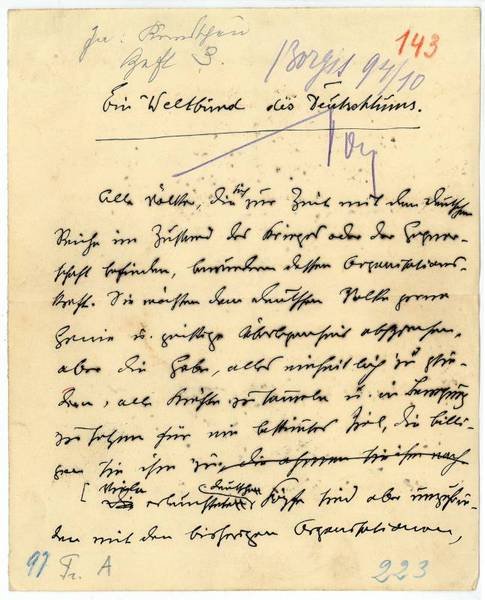 Heft 3.
143
Borgis 94/10
Ein Weltbund des Deutschtums.
Alle Völker, die sich zur Zeit mit dem deutschen
Reiche im Zustand des Krieges oder der Gegner-
schaft befinden, bewundern dessen Organisations-
kraft. Sie möchten dem deutschen Volke gerne
Genie u. geistige Überlegenheit absprechen,
aber die Gabe, alles einheitlich zu glie-
dern, alle Kräfte zu sammeln u. in Bewegung
zu setzen für ein bestimmtes Ziel, die billi-
gen sie ihm zu. die ahmen sie ihm nach
[ Viele deutsche Köpfe sind aber unzufrie-
den mit den bisherigen Organisationen,
97 Fr. A
223